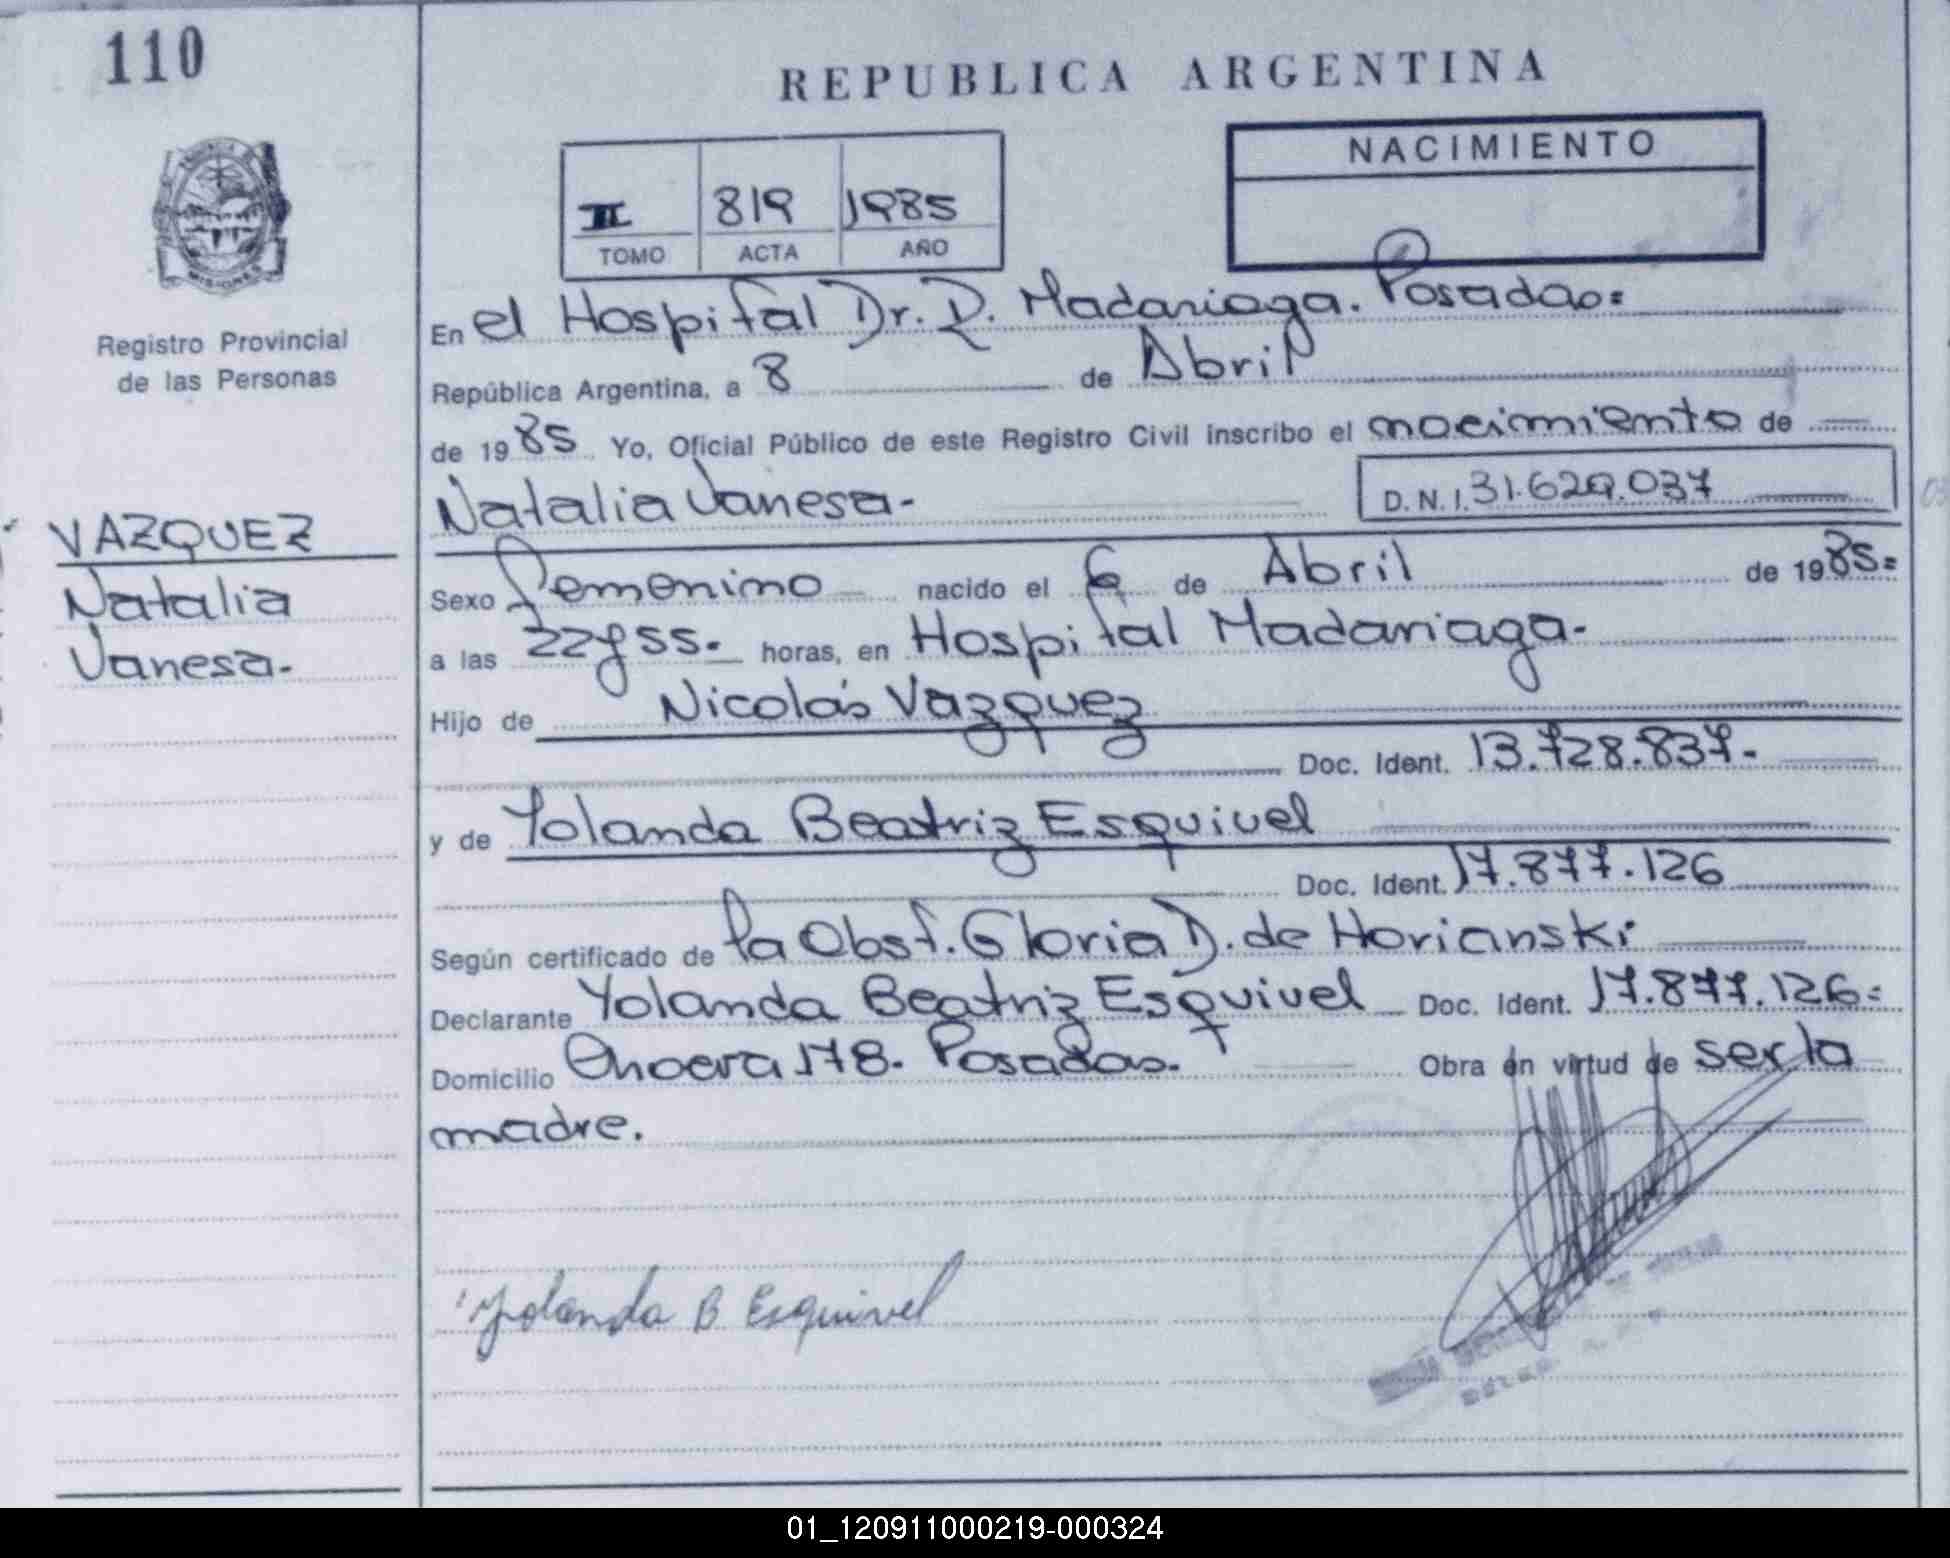 110
REPUBLICA ARGENTINA
NACIMIENTO
II 819 1985
TOMO ACTA AÑO
MISIONES
Registro Provincial
de las Personas
En el Hospital Dr. R. Madariaga. Posadas=
República Argentina, a 8 de Abril
de 1985 Yo, Oficial Público de este Registro Civil inscribo el nacimiento de
Natalia Vanesa.- D.N.I. 31.629.037
VAZQUEZ
Natalia
Vanesa.-
Sexo femenino nacido el 6 de Abril de 1985=
a las 22y55.- horas, en Hospital Madariaga.-
Hijo de Nicolás Vazquez
Doc. Ident. 13.728.837.-
y de Yolanda Beatriz Esquivel
Doc. Ident. 17.877.126
Según certificado de la Obst. Gloria D. de Horianski
Declarante Yolanda Beatriz Esquivel Doc. Ident. 17.877.126=
Domicilio 178. Posadas.- Obra en virtud de ser la
madre.
Yolanda B Esquivel
01_120911000219-000324